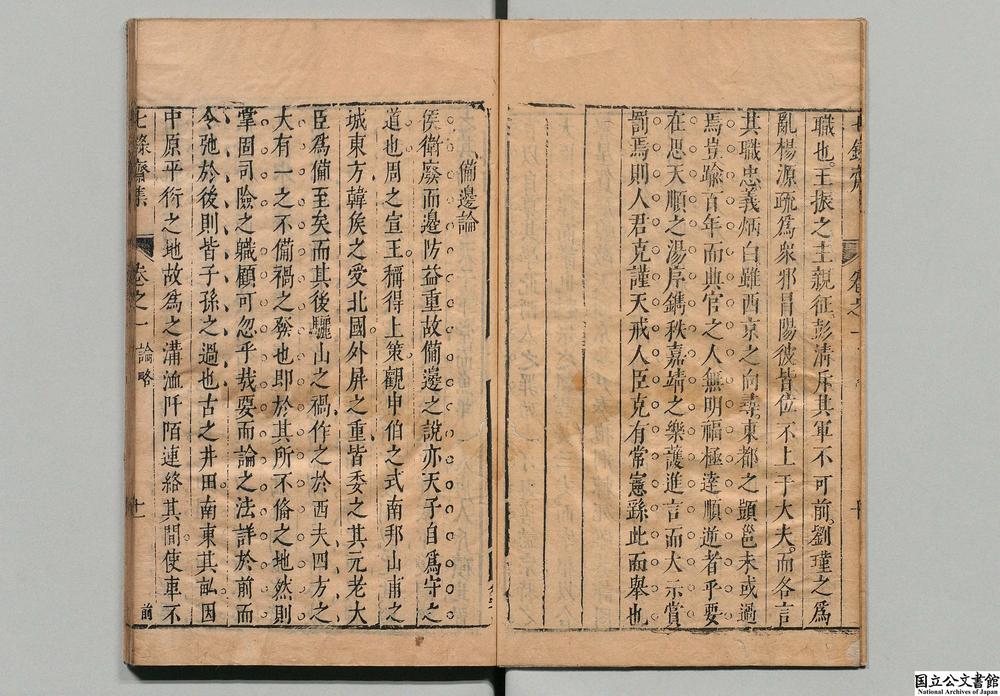 職也王振之主親征彭清斥其軍不可前劉瑾之爲
亂楊源疏爲衆邪冒陽彼皆位不上于大夫而各言
其職忠義炳白雖西京之向尋東都之顗邕未或過
焉豈踰百年而典官之人無明福極達順逆者乎要
在思天順之湯序鐫秩嘉靖之樂頀進言而大示賞
罰焉則人君克謹天戒人臣克有常憲繇此而舉也
備邊論
侯衛廢而邊防益重故備邊之說亦天子自爲守之
道也周之宣王稱得上策觀申伯之式南邦山甫之
城東方韓侯之受北國外屏之重皆委之其元老大
臣爲備至矣而其後驪山之禍作之於西夫四方之
大有一之不備禍之發也即於其所不備之地然則
鞏固司險之職顧可忽乎哉要而論之法詳於前而
令弛於後則皆子孫之過也古之井田南東其畝因
中原平衍之地故爲之溝洫阡陌連絡其間使車不
七錄齋集
卷之一
論略
十一
前
国立公文書館
National Archives of Japan